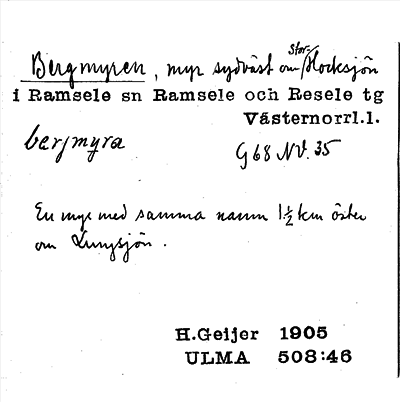 Bergmyren, myr sydväst om Stor-Flocksjön
i Ramsele sn Ramsele och Resele tg
Västernorrl.l.
bergmyra
G68 NV. 35
En myr med samma namn 1½ km öster
om Lungsjön.
H.Geijer 1905
ULMA 508:46